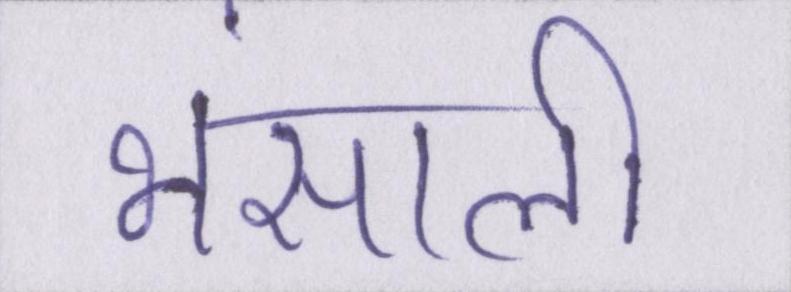 भंसाली